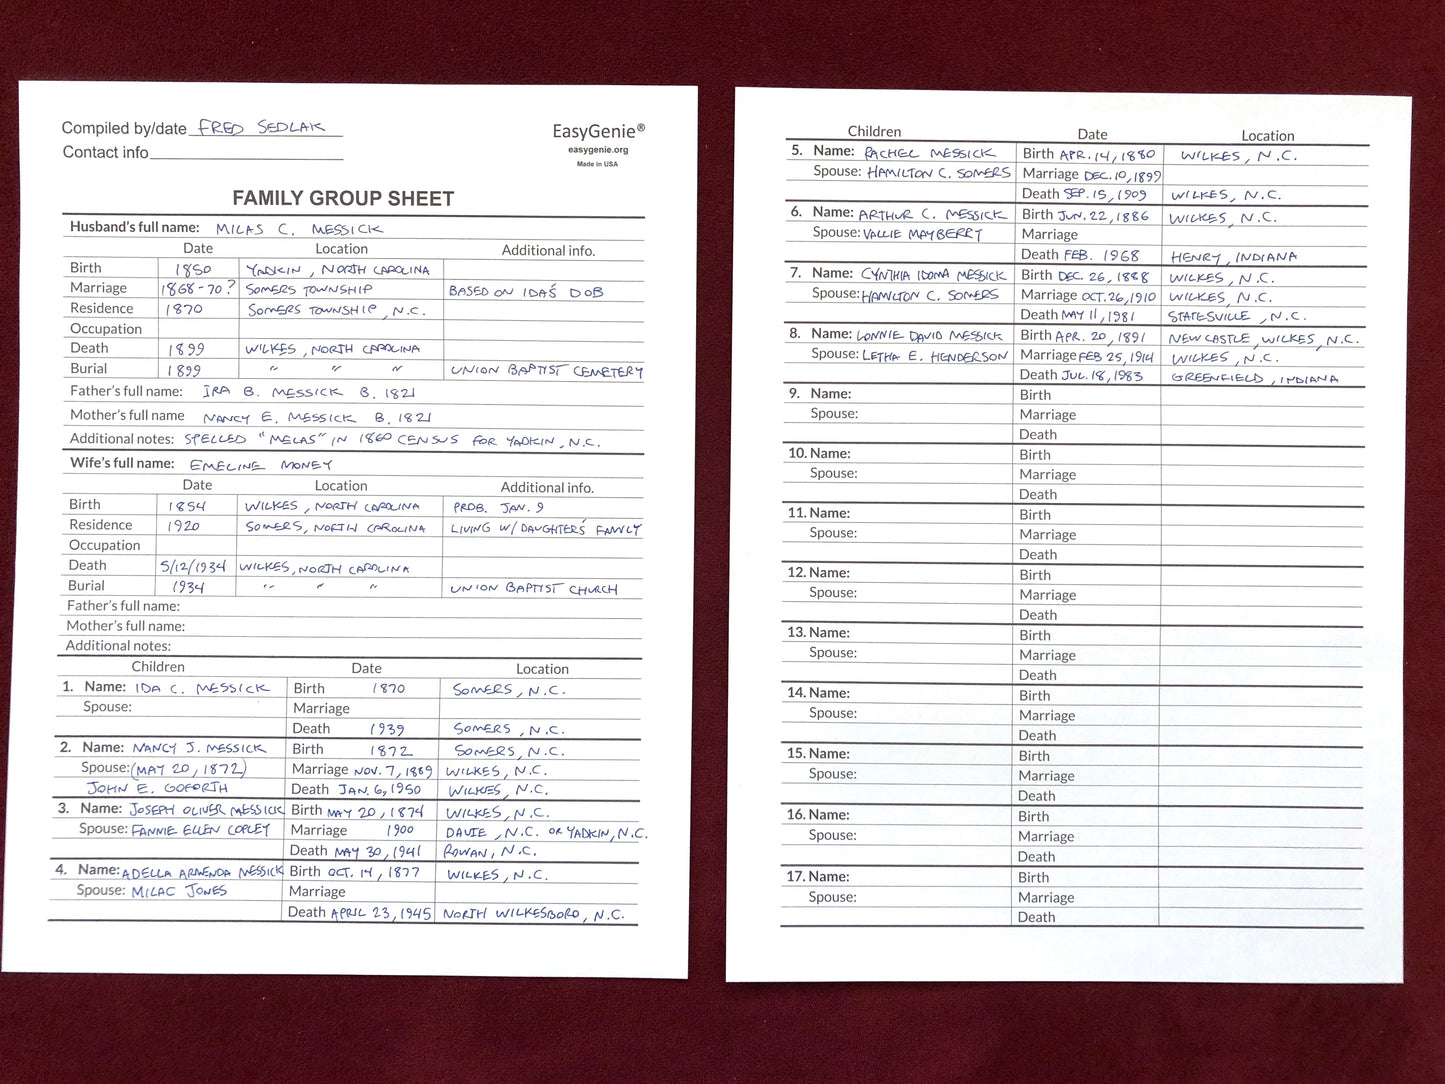 Compiled by/date FRED SEDLAK
EasyGenie®
Contact info
easygenie.org
Made in USA
FAMILY GROUP SHEET
Husband's full name: MILAS C. MESSICK
Date Location Additional info.
Birth 1850 YADKIN, NORTH CAROLINA
Marriage 1868-70? SOMERS TOWNSHIP BASED ON IDA'S DOB
Residence 1870 SOMERS TOWNSHIP, N.C.
Occupation
Death 1899 WILKES, NORTH CAROLINA
Burial 1899 " " " UNION BAPTIST CEMETERY
Father's full name: IRA B. MESSICK B. 1821
Mother's full name NANCY E. MESSICK B. 1821
Additional notes: SPELLED "MELAS" IN 1860 CENSUS FOR YADKIN, N.C.
Wife's full name: EMELINE MONEY
Date Location Additional info.
Birth 1854 WILKES, NORTH CAROLINA PROB. JAN. 9
Residence 1920 SOMERS, NORTH CAROLINA LIVING W/ DAUGHTER'S FAMILY
Occupation
Death 5/12/1934 WILKES, NORTH CAROLINA
Burial 1934 " " " UNION BAPTIST CHURCH
Father's full name:
Mother's full name:
Additional notes:
Children Date Location
1. Name: IDA C. MESSICK Birth 1870 SOMERS, N.C.
Spouse: Marriage
Death 1939 SOMERS, N.C.
2. Name: NANCY J. MESSICK Birth 1872 SOMERS, N.C.
Spouse: (MAY 20, 1872) Marriage NOV. 7, 1889 WILKES, N.C.
JOHN E. GOFORTH Death JAN. 6, 1950 WILKES, N.C.
3. Name: JOSEPH OLIVER MESSICK Birth MAY 20, 1874 WILKES, N.C.
Spouse: FANNIE ELLEN COPLEY Marriage 1900 DAVIE, N.C. OR YADKIN, N.C.
Death MAY 30, 1941 ROWAN, N.C.
4. Name: ADELLA ARMENDA MESSICK Birth OCT. 14, 1877 WILKES, N.C.
Spouse: MILAC JONES Marriage
Death APRIL 23, 1945 NORTH WILKESBORO, N.C.
Children Date Location
5. Name: RACHEL MESSICK Birth APR. 14, 1880 WILKES, N.C.
Spouse: HAMILTON C. SOMERS Marriage DEC. 10, 1899
Death SEP. 15, 1909 WILKES, N.C.
6. Name: ARTHUR C. MESSICK Birth JUN. 22, 1886 WILKES, N.C.
Spouse: VALLIE MAYBERRY Marriage
Death FEB. 1968 HENRY, INDIANA
7. Name: CYNTHIA IDOMA MESSICK Birth DEC. 26, 1888 WILKES, N.C.
Spouse: HAMILTON C. SOMERS Marriage OCT. 26, 1910 WILKES, N.C.
Death MAY 11, 1981 STATESVILLE, N.C.
8. Name: LONNIE DAVID MESSICK Birth APR. 20, 1891 NEW CASTLE, WILKES, N.C.
Spouse: LETHA E. HENDERSON Marriage FEB 25, 1914 WILKES, N.C.
Death JUL. 18, 1983 GREENFIELD, INDIANA
9. Name: Birth
Spouse: Marriage
Death
10. Name: Birth
Spouse: Marriage
Death
11. Name: Birth
Spouse: Marriage
Death
12. Name: Birth
Spouse: Marriage
Death
13. Name: Birth
Spouse: Marriage
Death
14. Name: Birth
Spouse: Marriage
Death
15. Name: Birth
Spouse: Marriage
Death
16. Name: Birth
Spouse: Marriage
Death
17. Name: Birth
Spouse: Marriage
Death